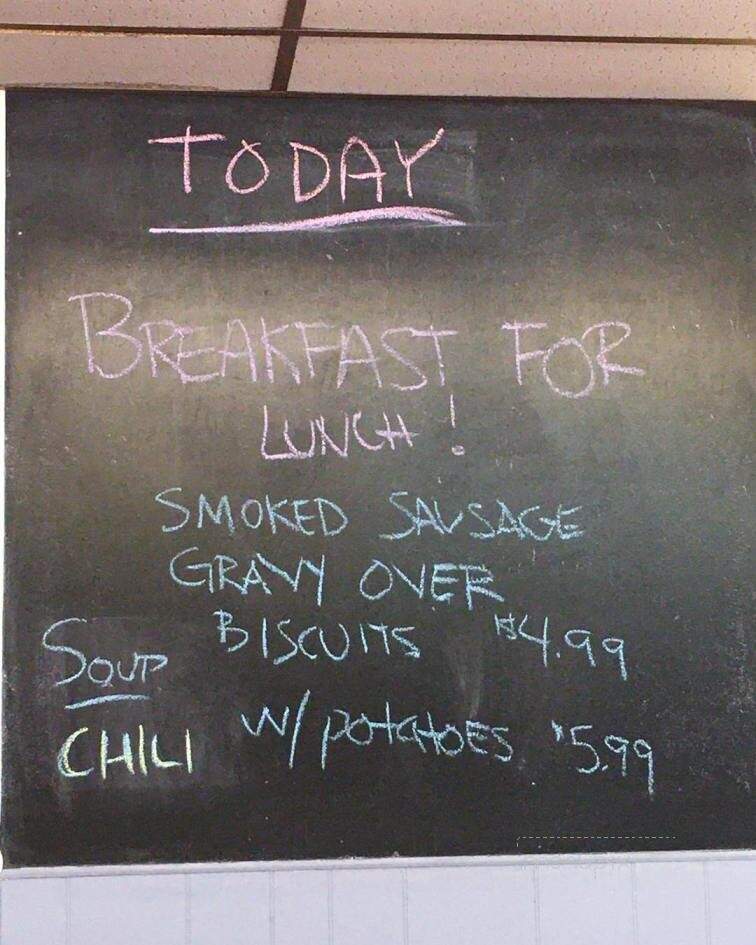 TODAY
BREAKFAST FOR
LUNCH!
SMOKED SAUSAGE
GRAVY OVER
BISCUITS $4.99
W/ POTATOES $5.99
SOUP
CHILI